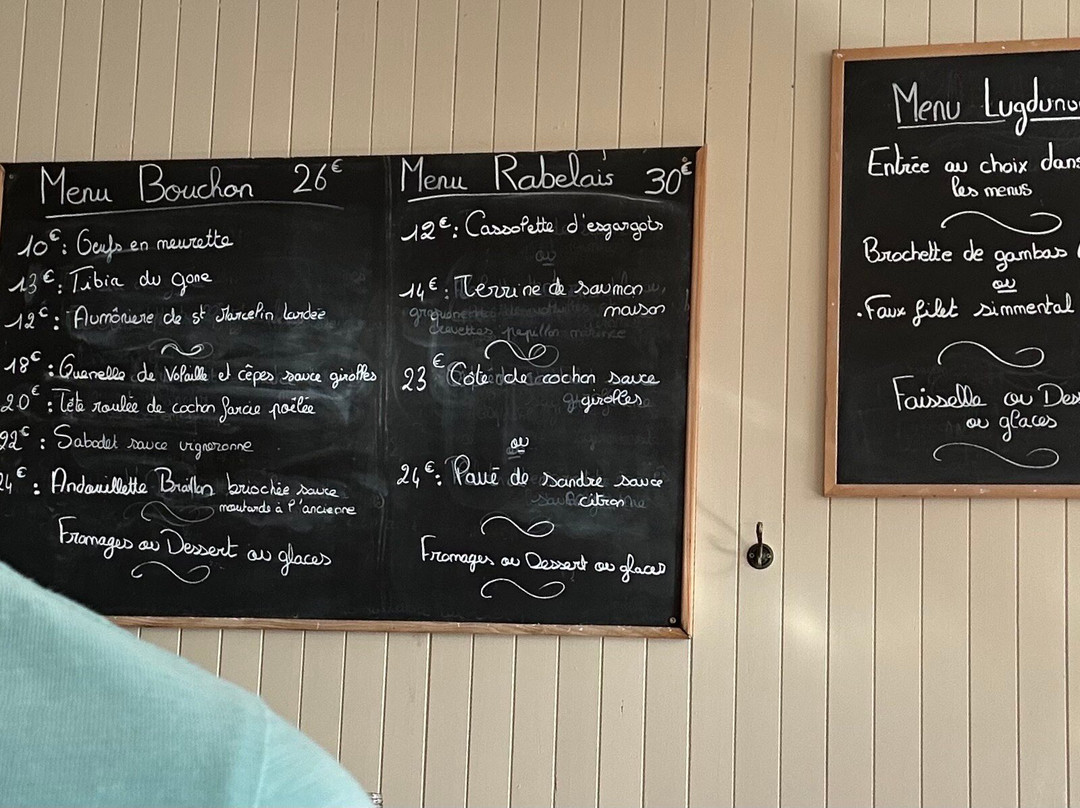 Menu Bouchon 26€
10€: Oeufs en meurette
13€: Tibia du gone
12€: Aumônière de st Marcelin lardée
18€: Quenelle de Volaille et cêpes sauce girolles
20€: Tête roulée de cochon farcie poêlée
22€: Sabodet sauce vigneronne
24€: Andouillette Braillon briochée sauce
moutarde à l'ancienne
Fromages ou Dessert ou glaces
Menu Rabelais 30€
12€: Cassolette d'esgargots
ou
14€: Terrine de saumon
maison
23€ Côte de cochon sauce
girolles
ou
24€: Pavé de sandre sauce
citron
Fromages ou Dessert ou glaces
Menu Lugdunu
Entrée au choix dans
les menus
Brochette de gambas
ou
.Faux filet simmental
Faisselle ou Des
ou glaces